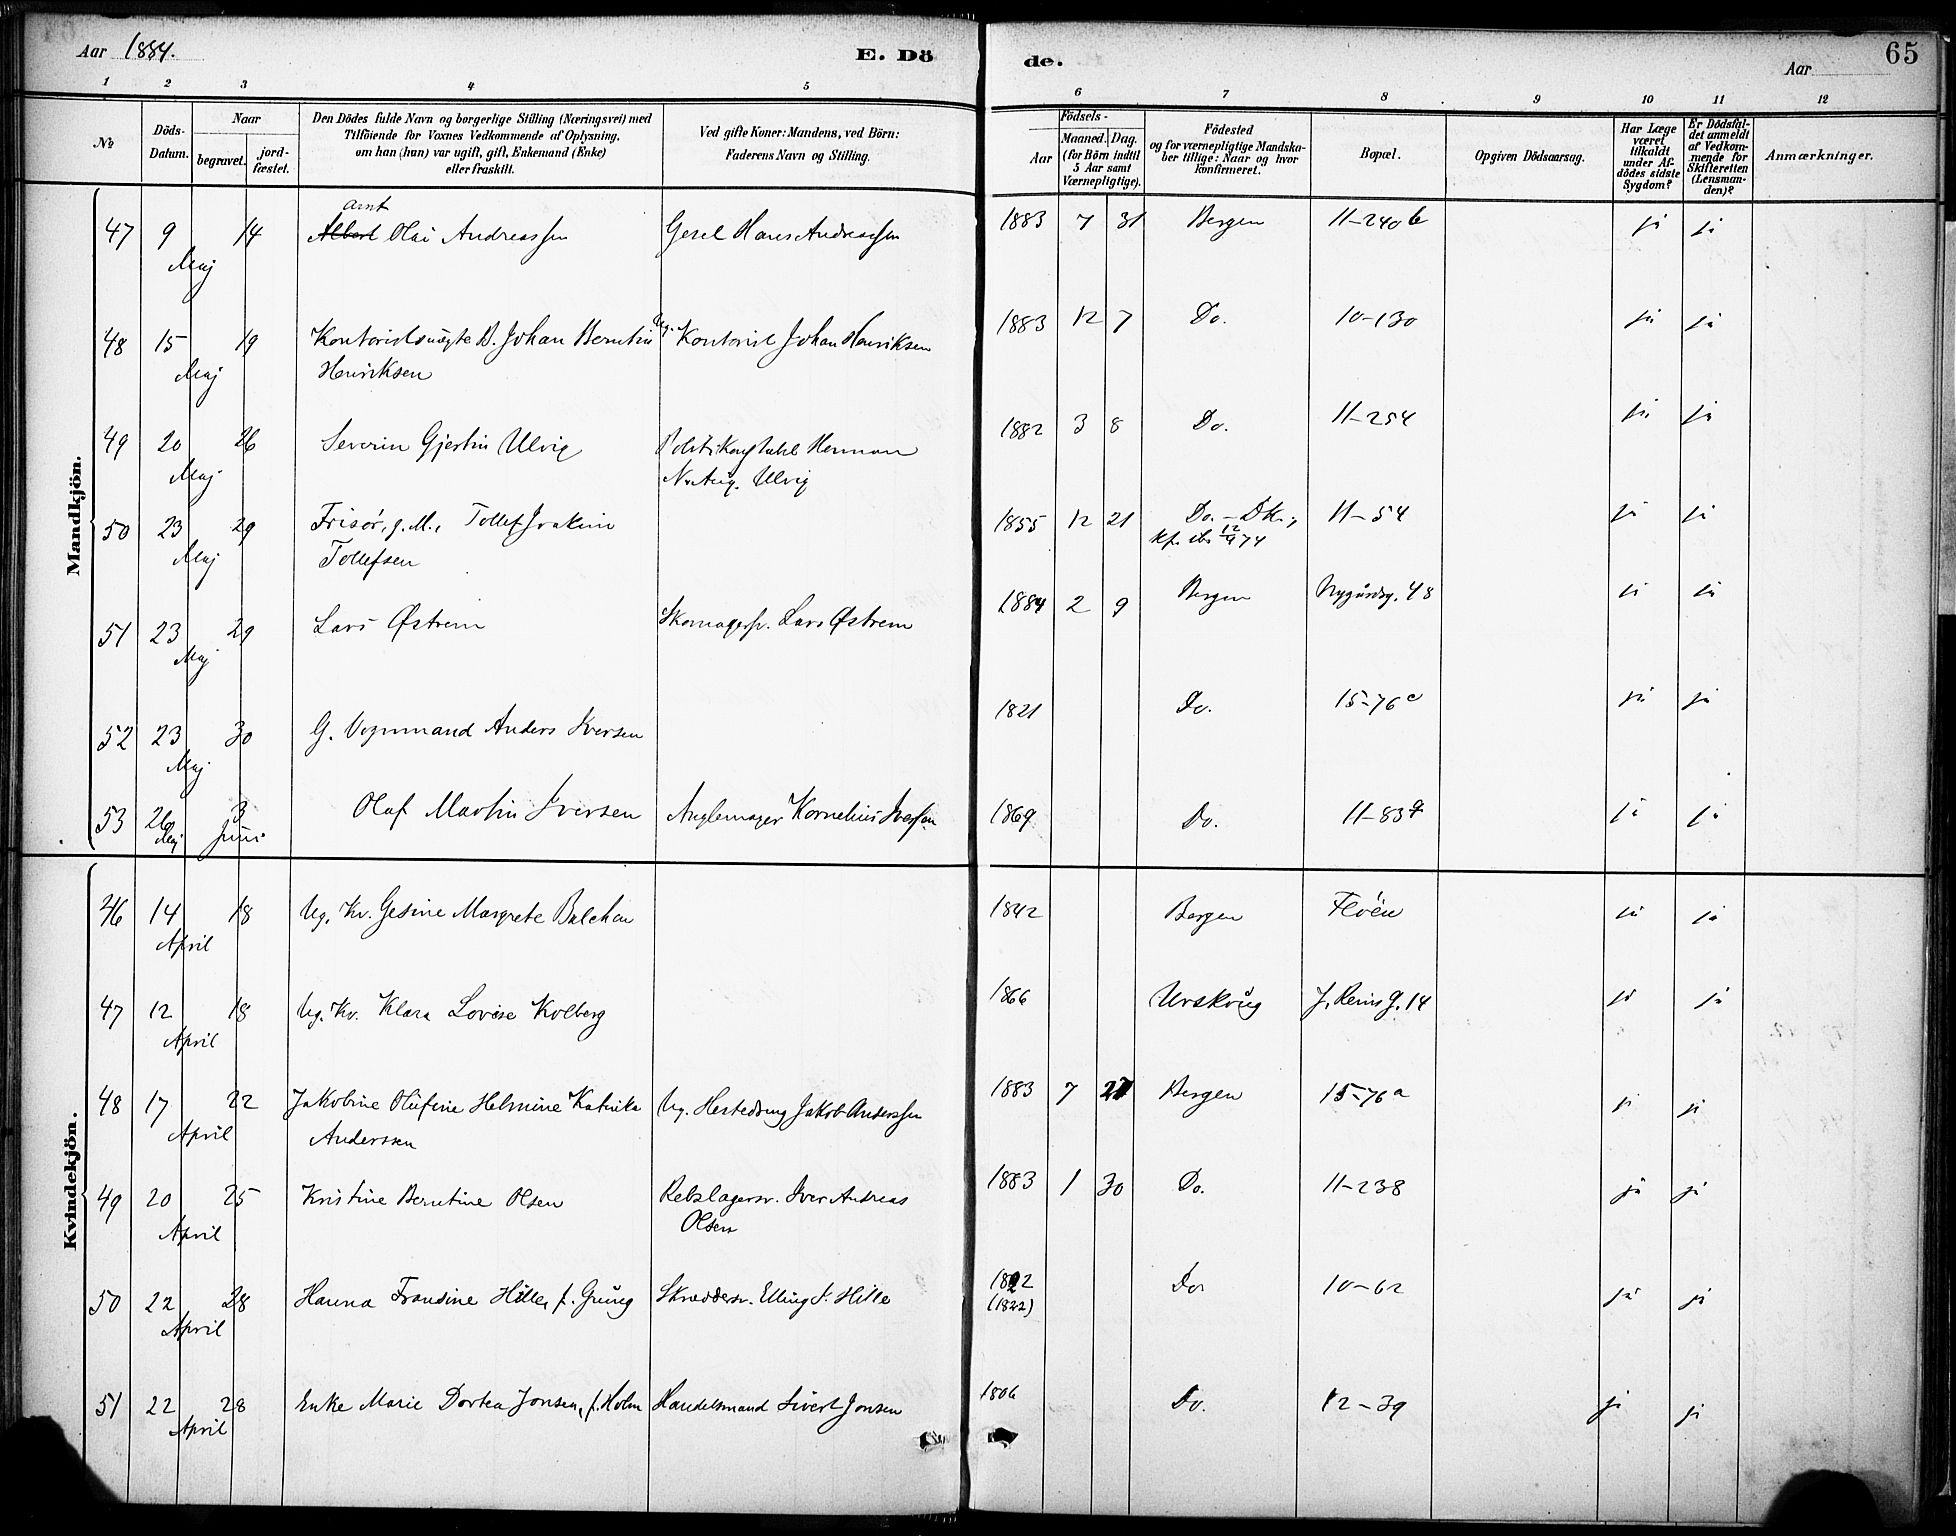 Aar 1884. E. Dö
de. Aar 65
1 2 3 4 5 6 7 8 9 10 11 12
No
Döds-
Datum.
Naar
begravet. jord-
fæstet.
Den Dödes fulde Navn og borgerlige Stilling (Næringsvei) med
Tilföiende for Voxnes Vedkommende af Oplysning,
om han (hun) var ugift, gift, Enkemand (Enke)
eller fraskilt.
Ved gifte Koner: Mandens, ved Börn:
Faderens Navn og Stilling.
Födsels-
Aar Maaned. Dag.
(for Börn indtil
5 Aar samt
Værnepligtige).
Födested
og for værnepligtige Mandska-
ber tillige: Naar og hvor
konfirmeret.
Bopæl.
Opgiven Dödsaarsag.
Har Læge
været
tilkaldt
under Af-
dödes sidste
Sygdom?
Er Dödsfal-
det anmeldt
af Vedkom-
mende for
Skifteretten
(Lensman-
den)?
Anmærkninger.
Mandkjön.
Arnt
47 9 14 Albert Olai Andreassen Gesel Hans Andreassen 1883 7 31 Bergen 11-240 b ja ja
Maj
48 15 19 Johan Berntin Kontorist Johan Henriksen 1883 12 7 Do. 10-130 ja ja
Maj Henriksen
49 20 26 Severin Gjertin Ulvig Politikonstabel Herman 1882 3 8 Do. 11-254 ja ja
Maj Ulvig
50 23 29 Frisør, g. M., Tollef Joakim 1855 12 21 Do. - DK., 11-54 ja ja
Maj Tollefsen kf. 12/9 74
51 23 29 Lars Østrem Skomagersv. Lars Østrem 1884 2 9 Bergen Nygårdsg. 48 ja ja
Maj
52 23 30 G. Vognmand Anders Iversen 1821 Do. 15-76 c ja ja
Maj
53 26 3 Olaf Martin Iversen Kornelius Iversen 1869 Do. 11-83 ja ja
Maj Juni
Kvindekjön.
46 14 18 Ug. Kv. Gesine Margrete Balchen 1842 Bergen Fløen ja ja
April
47 12 18 Ug. Kv. Klara Lovise Kolberg 1866 Urskoug J. Reinsg. 14 ja ja
April
48 17 22 Jakobine Olufine Helmine Katrika Ug. Hestedreng Jakob Anderssen 1883 7 27 Bergen 15-76 a ja ja
April Anderssen
49 20 25 Kristine Berntine Olsen Rebslagersv. Iver Andreas 1883 1 30 Do. 11-238 ja ja
April Olsen
50 22 28 Hanna Fransine Hille, f. Grung Skreddersv. Elling S. Hille 1822 Do. 10-62 ja ja
April (1822)
51 22 28 Enke Marie Dortea Jonsen, f. Holm Handelsmand Sivert Jonsen 1806 Do. 12-39 ja ja
April